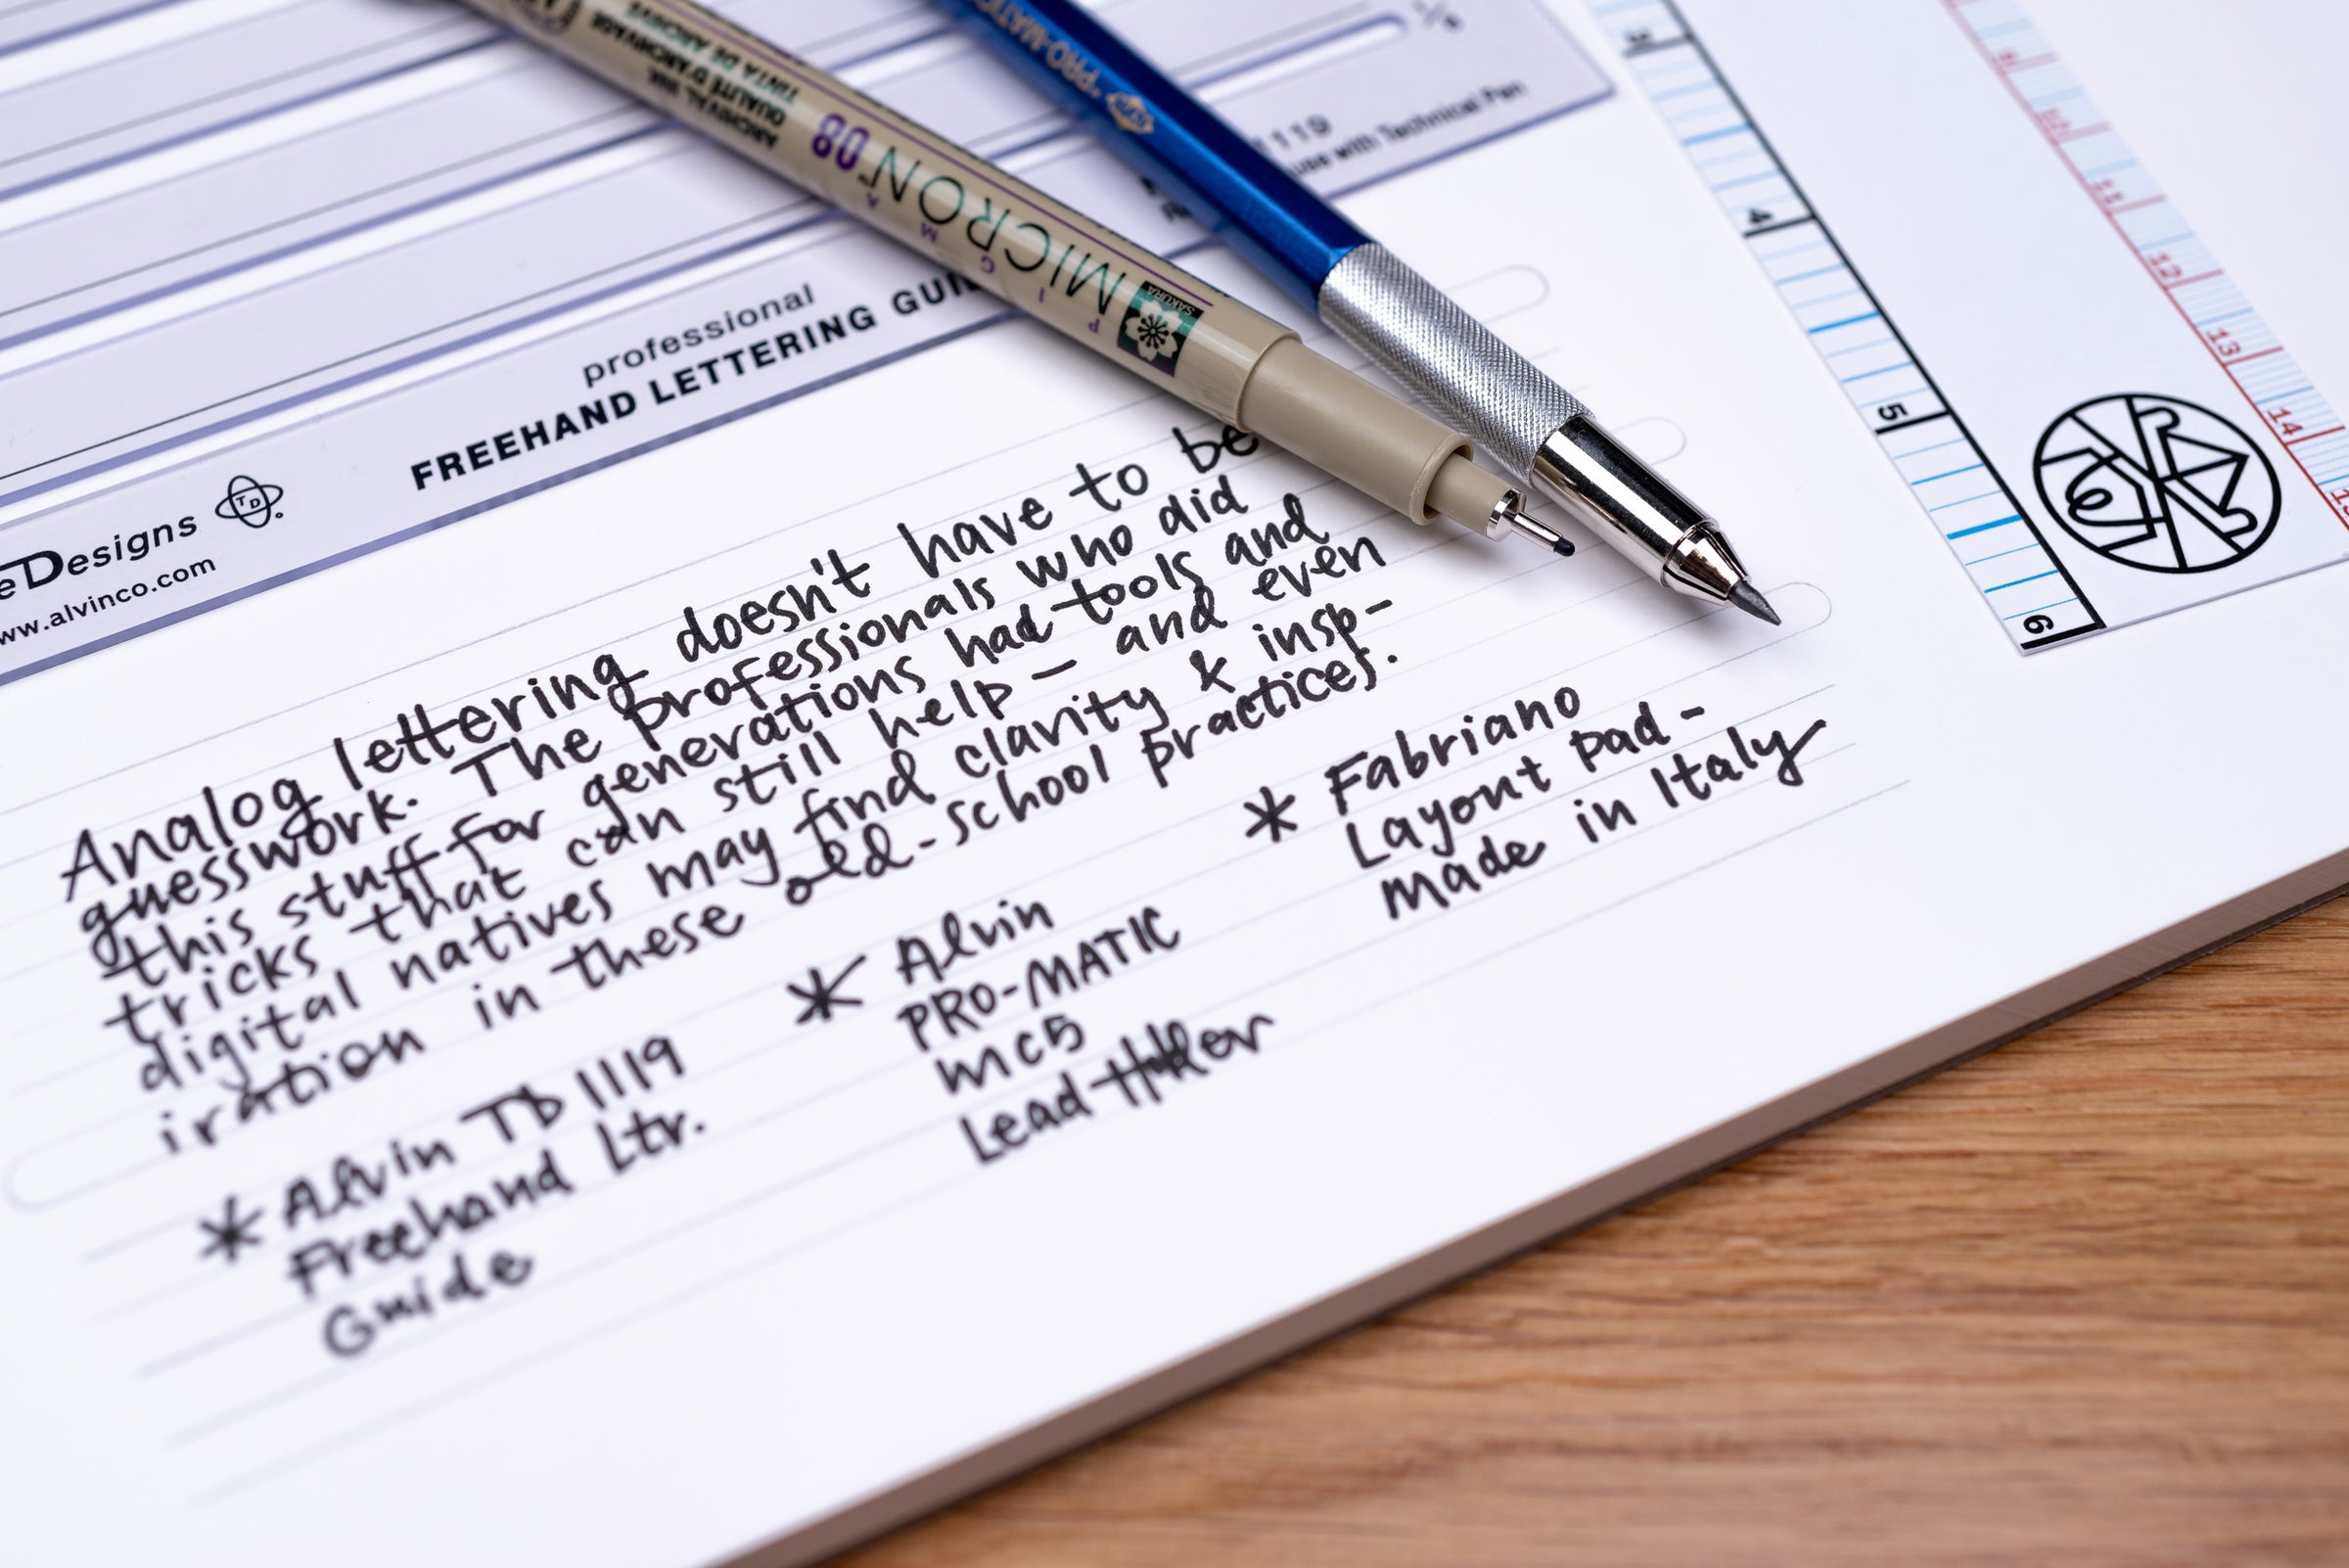 1/8
1119
use with Technical Pen
professional
FREEHAND LETTERING
eDesigns
TD
www.alvinco.com
ARCHIVAL INK
QUALITÉ D'ARCHIVAGE
TINTA DE ARCHIVO
PIGMA
MICRON 08
SAKURA
"PRO-MATIC"
4
5
6
9
10
11
12
13
14
Analog lettering doesn't have to be
guesswork. The professionals who did
this stuff for generations had tools and
tricks that can still help – and even
digital natives may find clarity & insp-
iration in these old-school practices.
* Alvin TD 1119
Freehand Ltr.
Guide
* Alvin
PRO-MATIC
MC5
Lead Holder
* Fabriano
Layout Pad -
Made in Italy